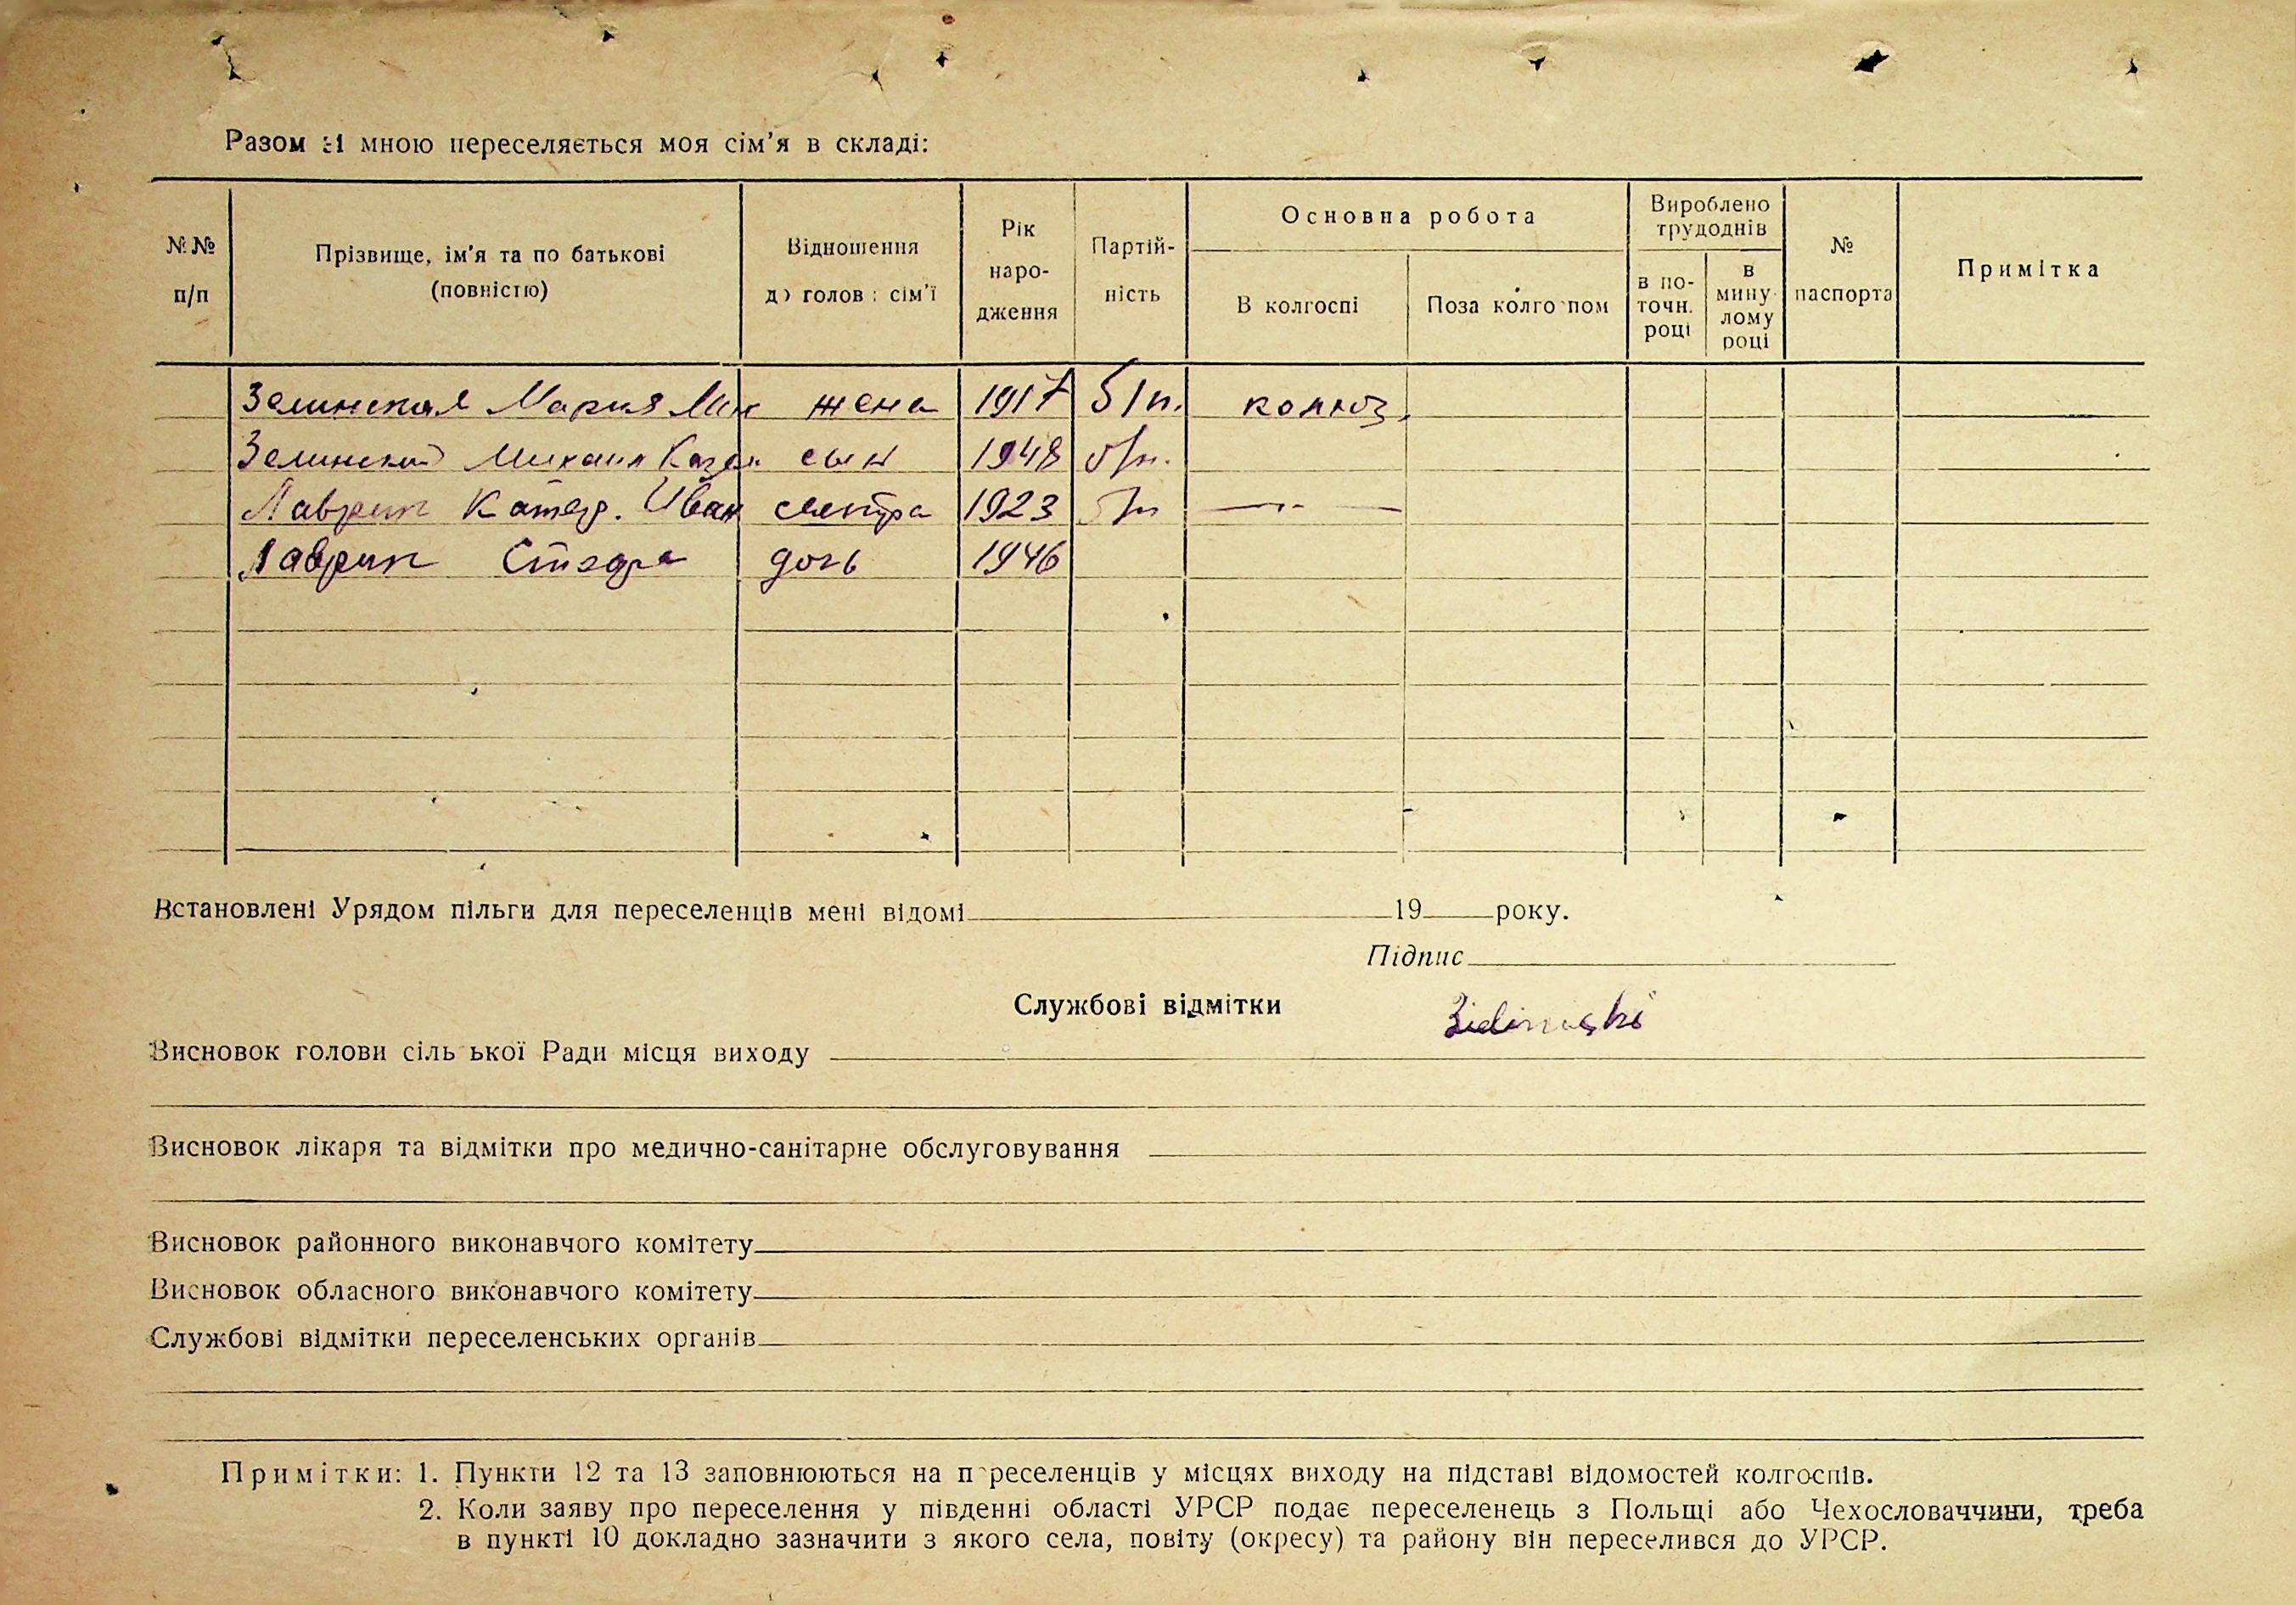 Разом зі мною переселяється моя сім'я в складі:
№№ п/п
Прізвище, ім'я та по батькові (повністю)
Відношення до голови сім'ї
Рік народження
Партійність
Основна робота
В колгоспі
Поза колгоспом
Вироблено трудоднів
в поточн. році
в минулому році
№ паспорта
Примітка
Зелинская Мария Мих жена 1917 б/п. колхоз.
Зелинский Михаил Казим сын 1948 б/п.
Лаврик Катер. Иван сестра 1923 б/п —
Лаврик дочь 1946
Встановлені Урядом пільги для переселенців мені відомі 19 року.
Підпис
Службові відмітки
Zielinski
Висновок голови сільської Ради місця виходу
Висновок лікаря та відмітки про медично-санітарне обслуговування
Висновок районного виконавчого комітету
Висновок обласного виконавчого комітету
Службові відмітки переселенських органів
Примітки: 1. Пункти 12 та 13 заповнюються на переселенців у місцях виходу на підставі відомостей колгоспів.
2. Коли заяву про переселення у південні області УРСР подає переселенець з Польщі або Чехословаччини, треба
в пункті 10 докладно зазначити з якого села, повіту (окресу) та району він переселився до УРСР.